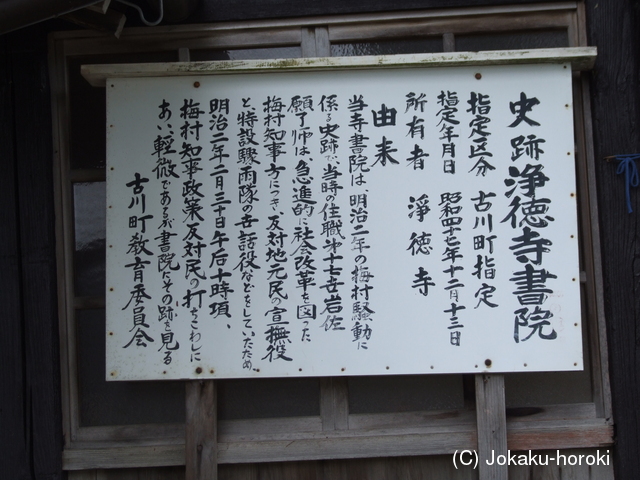 史跡 浄徳寺書院
指定区分 古川町指定
指定年月日 昭和四十七年十二月十三日
所有者 浄徳寺
由来
当寺書院は、明治二年の梅村騒動に
係る史跡で、当時の住職第十七世岩佐
願了師は、急進的に社会改革を図った
梅村知事方につき反対地元民の宣撫役
と、特設驟雨隊の世話役などをしていたため、
明治二年二月三十日午后十時頃、
梅村知事政策反対民の打ちこわしに
あい、軽微であるが書院にその跡を見る
古川町教育委員会
(C) Jokaku-horoki